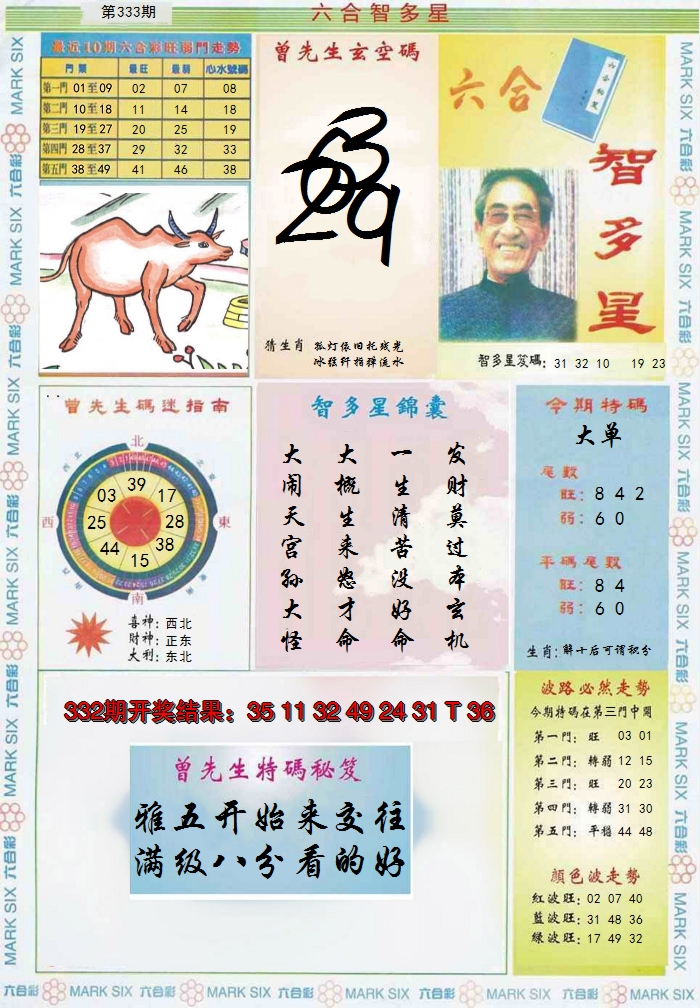 第333期
六合智多星
最近10期六合彩旺弱門走勢
門類 最旺 最弱 心水號碼
第一門 01至09 02 07 08
第二門 10至18 11 14 18
第三門 19至27 20 25 19
第四門 28至37 29 32 33
第五門 38至49 41 46 38
曾先生玄空碼
猜生肖 孤灯依旧托残光
冰弦纤指弹流水
六合
智多星
智多星笈碼: 31 32 10 19 23
曾先生碼迷指南
北
西
東
南
39
17
28
38
15
44
25
03
喜神: 西北
財神: 正东
大利: 东北
智多星錦囊
发财莫过本玄机
一生清苦没好命
大概生来怒才命
大闹天宫孙大怪
今期特碼
大单
尾數
旺: 8 4 2
弱: 6 0
平碼尾數
旺: 8 4
弱: 6 0
生肖: 解十后可谓积分
332期开奖结果: 35 11 32 49 24 31 T 36
曾先生特碼秘笈
雅五开始来交往
满级八分看的好
波路必然走勢
今期特碼在第三門中開
第一門: 旺 03 01
第二門: 轉弱 12 15
第三門: 旺 20 23
第四門: 轉弱 31 30
第五門: 平穩 44 48
顏色波走勢
紅波旺: 02 07 40
藍波旺: 31 48 36
綠波旺: 17 49 32
六合彩 MARK SIX 六合彩 MARK SIX 六合彩 MARK SIX 六合彩 MARK SIX